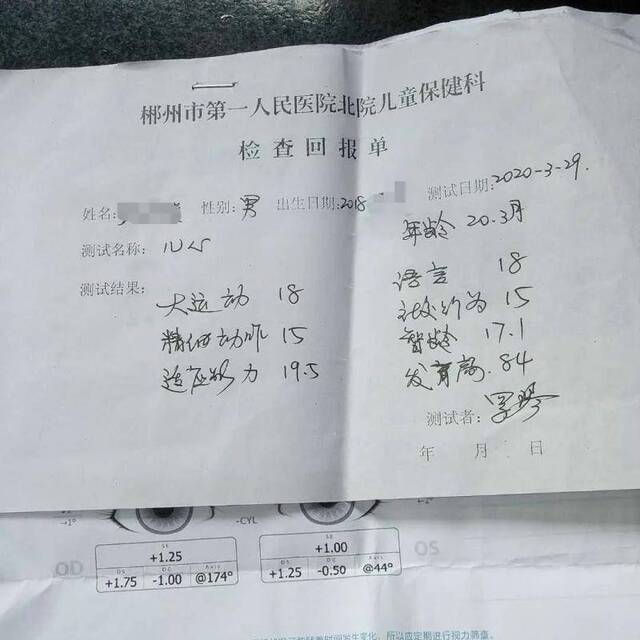 郴州市第一人民医院北院儿童保健科
检查回报单
姓名: 性别: 男 出生日期: 2018 测试日期: 2020-3-29.
年龄 20.3月
测试名称: 儿心
测试结果: 大运动 18 语言 18
精细动作 15 社交行为 15
适应能力 19.5 智龄 17.1
发育商. 84
测试者:
年 月 日
-CYL
OD
SE +1.25
DS +1.75 DC -1.00 Axis @174°
SE +1.00
DS +1.25 DC -0.50 Axis @44°
OS
发生变化，所以应定期进行视力筛查。